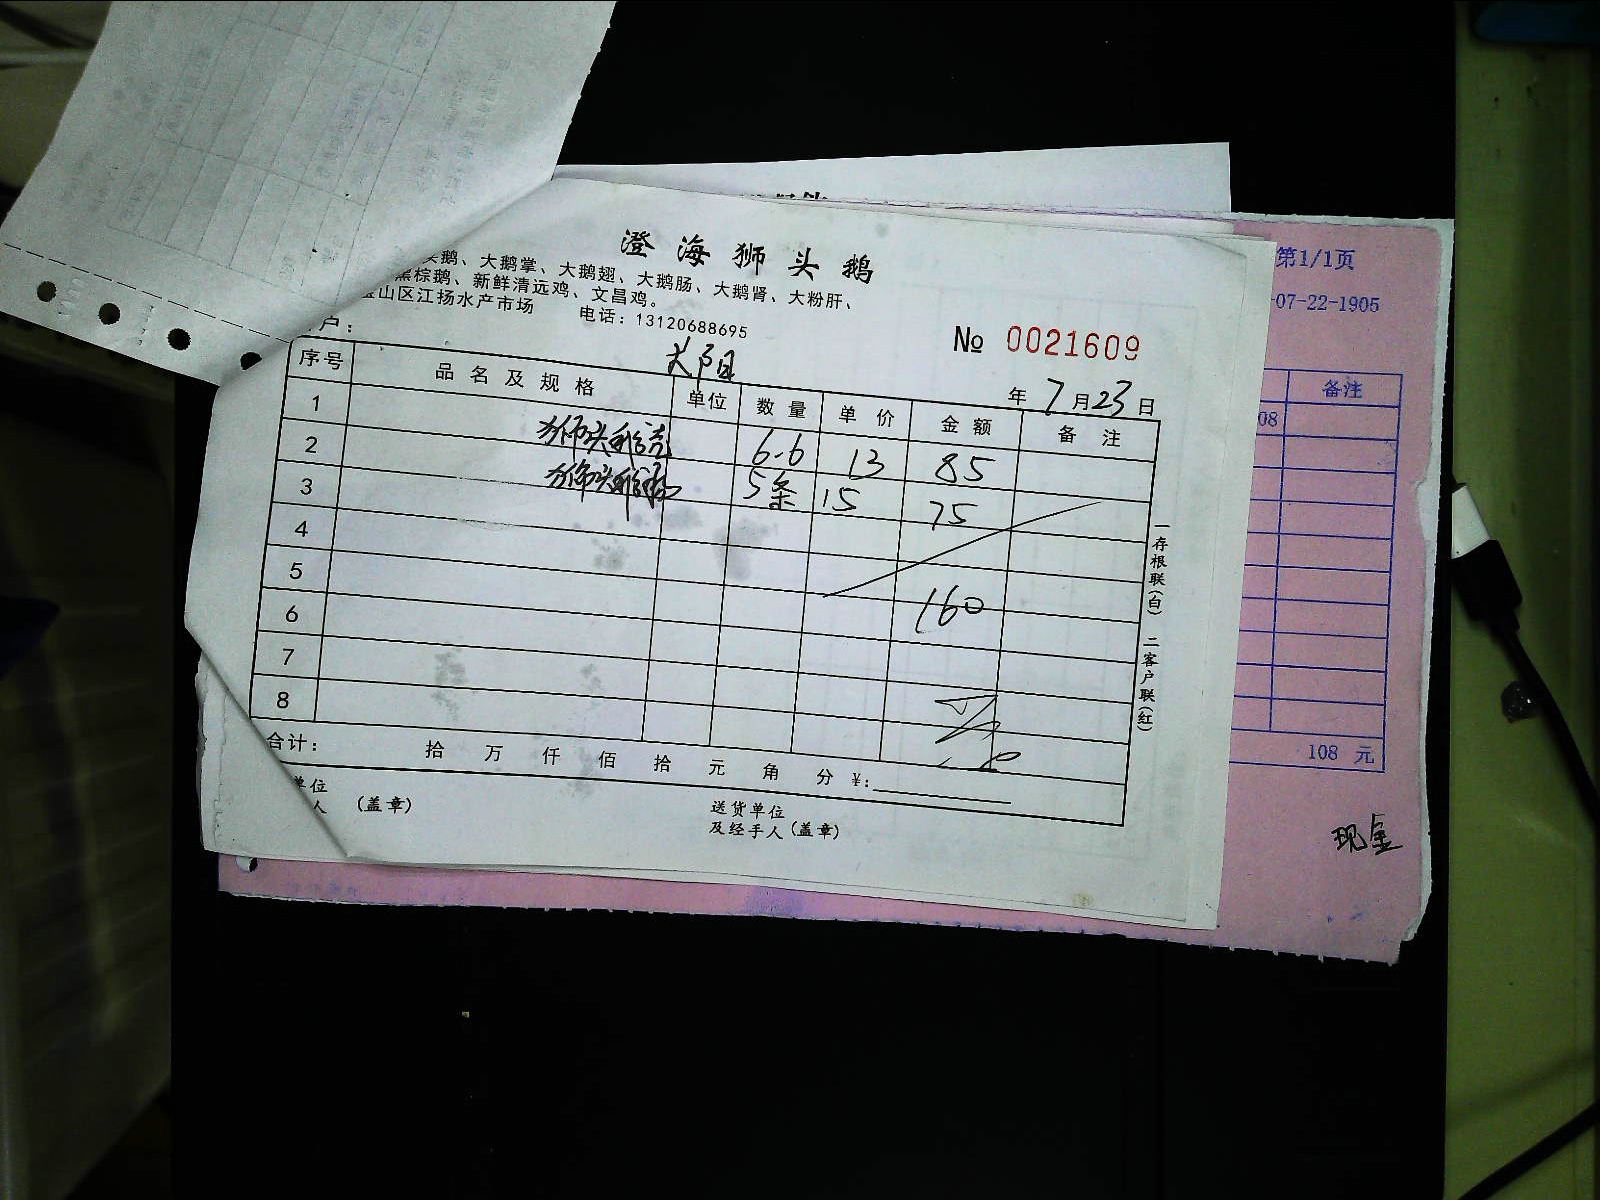 澄海狮头鹅
头鹅、大鹅掌、大鹅翅、大鹅肠、大鹅肾、大粉肝、
黑棕鹅、新鲜清远鸡、文昌鸡。
宝山区江扬水产市场 电话：13120688695
户： 太阳
№ 0021609
年 7 月 23 日
序号 品名及规格 单位 数量 单价 金额 备注
1 狮头鹅 6.6 13 85
2 狮头鹅肠 5条 15 75
3
4 160
5
6
7
8
合计： 拾 万 仟 佰 拾 元 角 分 ¥:
单位
人 (盖章)
送货单位
及经手人(盖章)
一存根联(白) 二客户联(红)
第1/1页
-07-22-1905
备注
08
108 元
现金